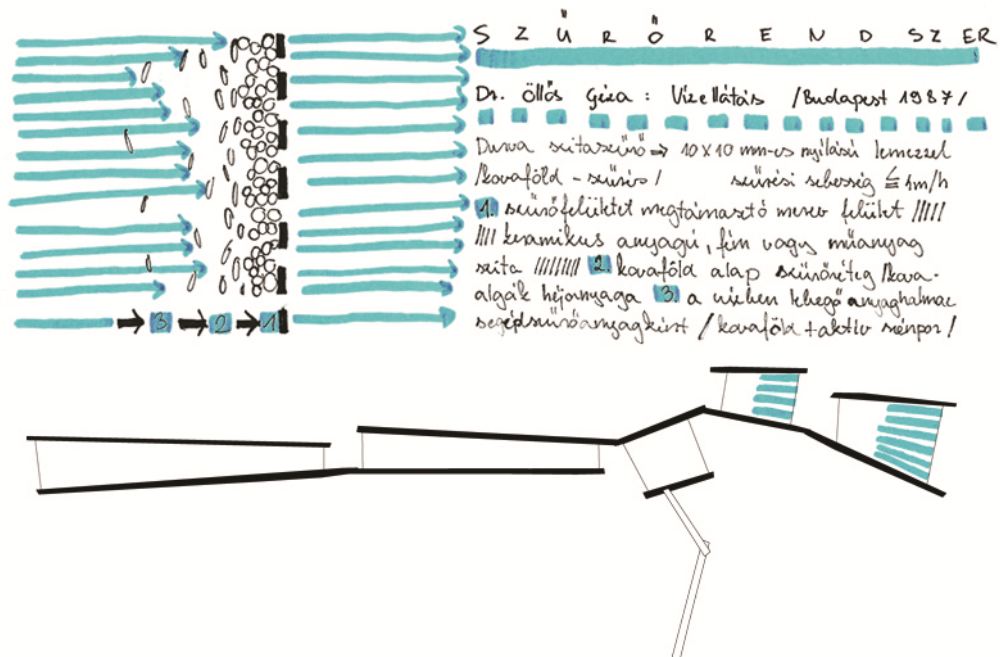 SZŰRŐRENDSZER
Dr. Öllős Géza: Vízellátás /Budapest 1987/
Durva szitaszűrő ⇒ 10x10 mm-es nyílású lemezzel
/kovaföld-szűrés/ szűrési sebesség ≦ 1m/h
1. szűrőfelületet megtámasztó merev felület /////
//// keramikus anyagú, fém vagy műanyag
szita //////// 2. kovaföld alap szűrőréteg /kova-
algák héjanyaga 3. a vízben lebegő anyaghalmaz
segédszűrőanyagként /kovaföld + aktív szénpor/
3 2 1